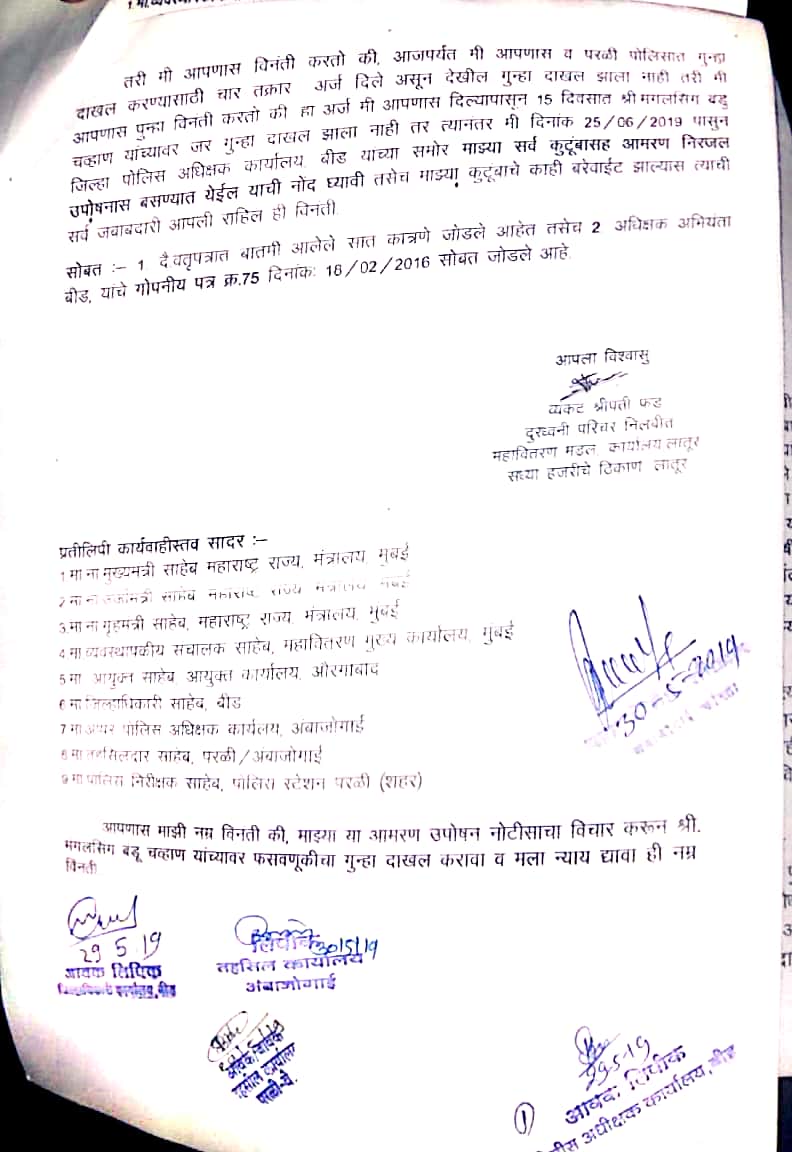 तरी मी आपणास विनंती करतो की, आजपर्यंत मी आपणास व परळी पोलिसात गुन्हा
दाखल करण्यासाठी चार तक्रार अर्ज दिले असून देखील गुन्हा दाखल झाला नाही तरी मी
आपणास पुन्हा विनती करतो की हा अर्ज मी आपणास दिल्यापासून 15 दिवसात श्री मगलसिग बद्दु
चव्हाण यांच्यावर जर गुन्हा दाखल झाला नाही तर त्यानंतर मी दिनांक 25/06/2019 पासुन
जिल्हा पोलिस अधिक्षक कार्यालय, बीड यांच्या समोर माझ्या सर्व कुटूंबासह आमरण निरजल
उपोषनास बसण्यात येईल याची नोंद घ्यावी तसेच माझ्या कुटूंबाचे काही बरेवाईट झाल्यास त्याची
सर्व जवाबदारी आपली राहिल ही विनंती.
सोबत :– 1. दैवतृपत्रात बातमी आलेले सात कात्रणे जोडले आहेत तसेच 2. अधिक्षक अभियंता
बीड, यांचे गोपनीय पत्र क्र.75 दिनांक: 18/02/2016 सोबत जोडले आहे.
आपला विश्वासु
व्यकट श्रीपती फड
दुरध्वनी परिचर निलबीत
महावितरण मडल, कार्यालय लातूर
सध्या हजरीचे ठिकाण लातूर
प्रतीलिपी कार्यवाहीस्तव सादर :–
1 मा ना मुख्यमत्री साहेब महाराष्ट्र राज्य, मंत्रालय, मुबई
2 मा ना साहेब महाराष्ट्र राज्य मंत्रालय मुबई
3.मा ना गृहमत्री साहेब, महाराष्ट्र राज्य, मंत्रालय, मुबई
4 मा व्यवस्थापकीय सचालक साहेब, महावितरण मुख्य कार्यालय, मुबई
5 मा. आयुक्त साहेब, आयुक्त कार्यालय, औरगाबाद
6 मा जिल्हाधिकारी साहेब, बीड
7 मा अपर पोलिस अधिक्षक कार्यलय, अंबाजोगाई
8 मा तहसिलदार साहेब, परळी/अंबाजोगाई
9 मा पोलिस निरीक्षक साहेब, पोलिस स्टेशन परळी (शहर)
30-5-2019
आपणास माझी नम्र विनती की, माझ्या या आमरण उपोषन नोटीसाचा विचार करून श्री.
मगलसिग बद्दू चव्हाण यांच्यावर फसवणूकीचा गुन्हा दाखल करावा व मला न्याय द्यावा ही नम्र
विनती
29 5 19
आवक लिपिक
जिल्हाधिकारी कार्यालय, बीड
लिपीक 30/5/19
तहसिल कार्यालय
अंबाजोगाई
आवक लिपिक
तहसील कार्यालय
परळी-वै.
29-5-19
आवक लिपीक
पोलीस अधीक्षक कार्यालय, बीड
1